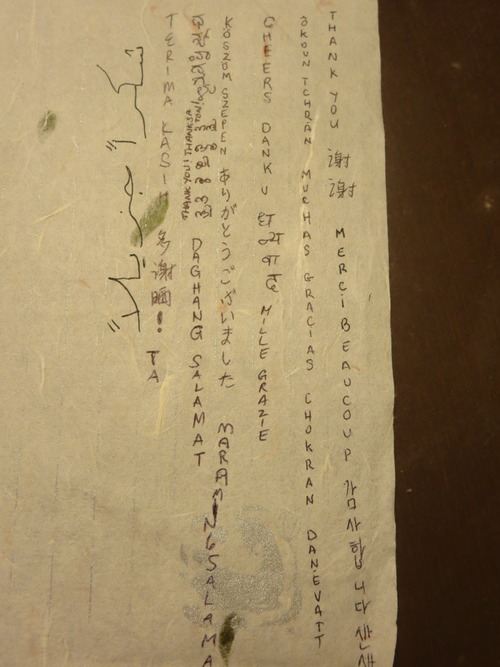 THANK YOU 谢谢 MERCI BEAUCOUP 감사합니다
ÔKOUN TCHRAN MUCHAS GRACIAS CHOKRAN DANEVATT
CHEERS DANK U धन्यवाद MILLE GRAZIE
KÖSZÖM SZEPEN ありがとうございました MARAMING SALAMA
THANK YOU! THANKS A TON! DAGHANG SALAMAT
TERIMA KASIH 多謝晒!! TA
شكراً جزيلاً